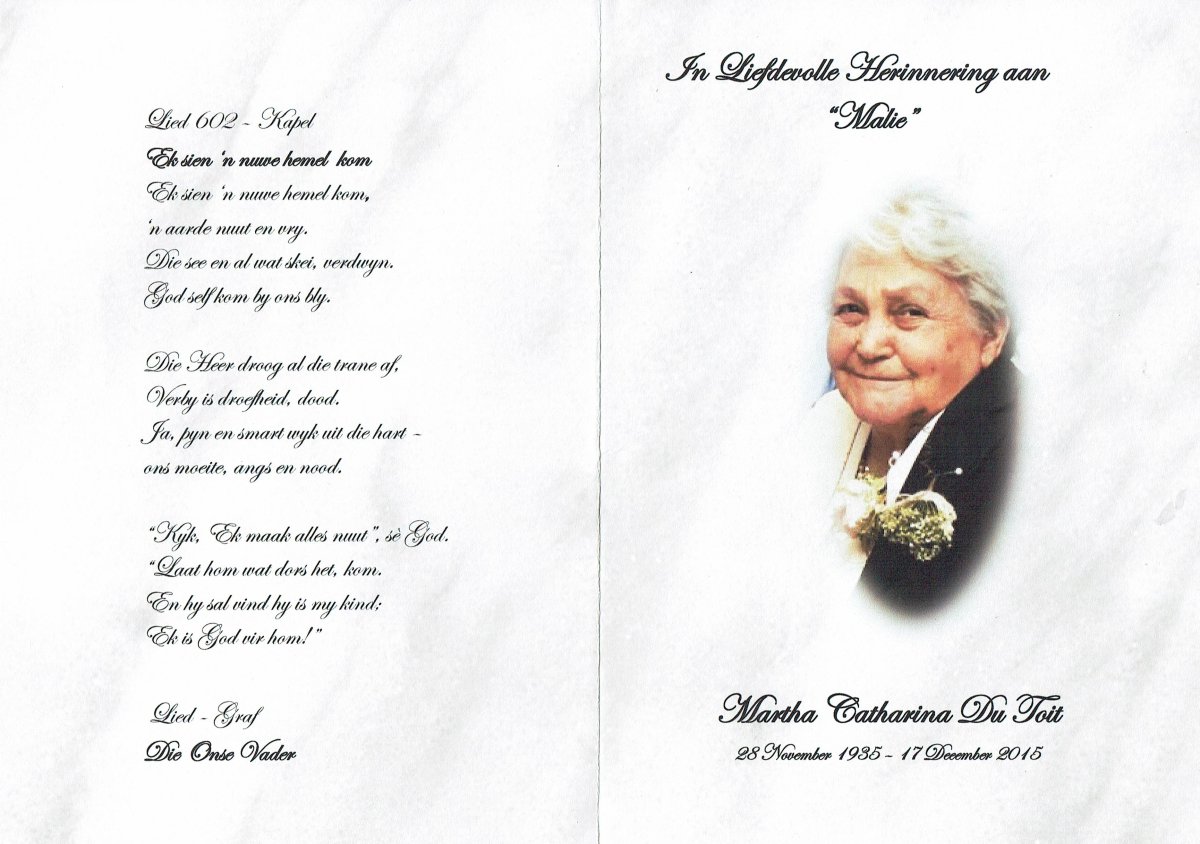 Lied 602 - Kapel
Ek sien 'n nuwe hemel kom
Ek sien 'n nuwe hemel kom,
'n aarde nuut en vry.
Die see en al wat skei, verdwyn.
God self kom by ons bly.
Die Heer droog al die trane af,
Verby is droefheid, dood.
Ja, pyn en smart wyk uit die hart -
ons moeite, angs en nood.
"Kyk, Ek maak alles nuut", sè God.
"Laat hom wat dors het, kom.
En hy sal vind hy is my kind;
Ek is God vir hom!"
Lied - Graf
Die Onse Vader
In Liefdevolle Herinnering aan
"Malie"
Martha Catharina Du Toit
28 November 1935 - 17 December 2015